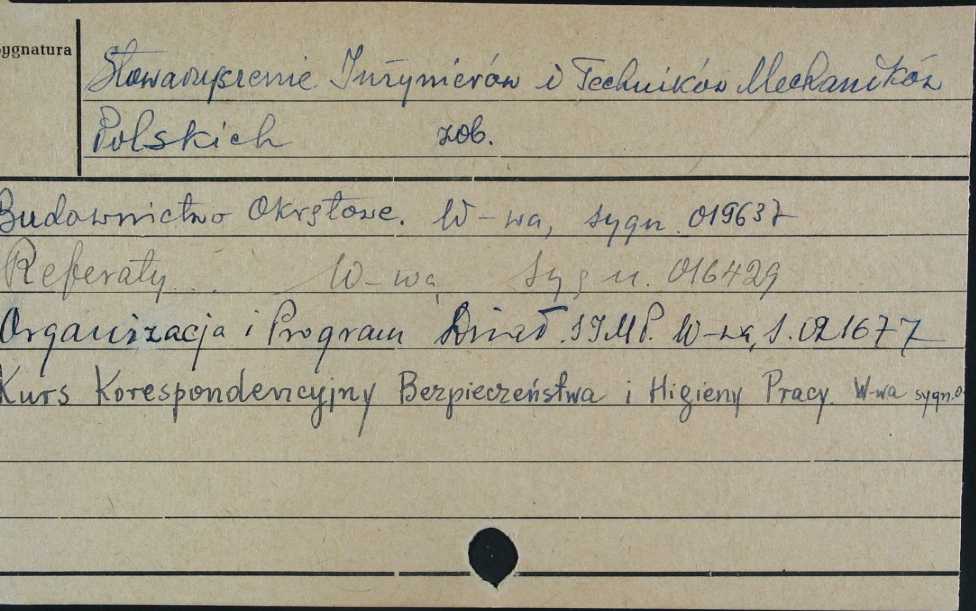 Sygnatura
Stowarzyszenie Inżynierów i Techników Mechaników
Polskich zob.
Budownictwo Okrętowe. W-wa, sygn. 019637
Referaty W-wa sygn. 016429
Organizacja i Program Dział. SIMP. W-wa, S. 021677
Kurs Korespondencyjny Bezpieczeństwa i Higieny Pracy. W-wa sygn. 0